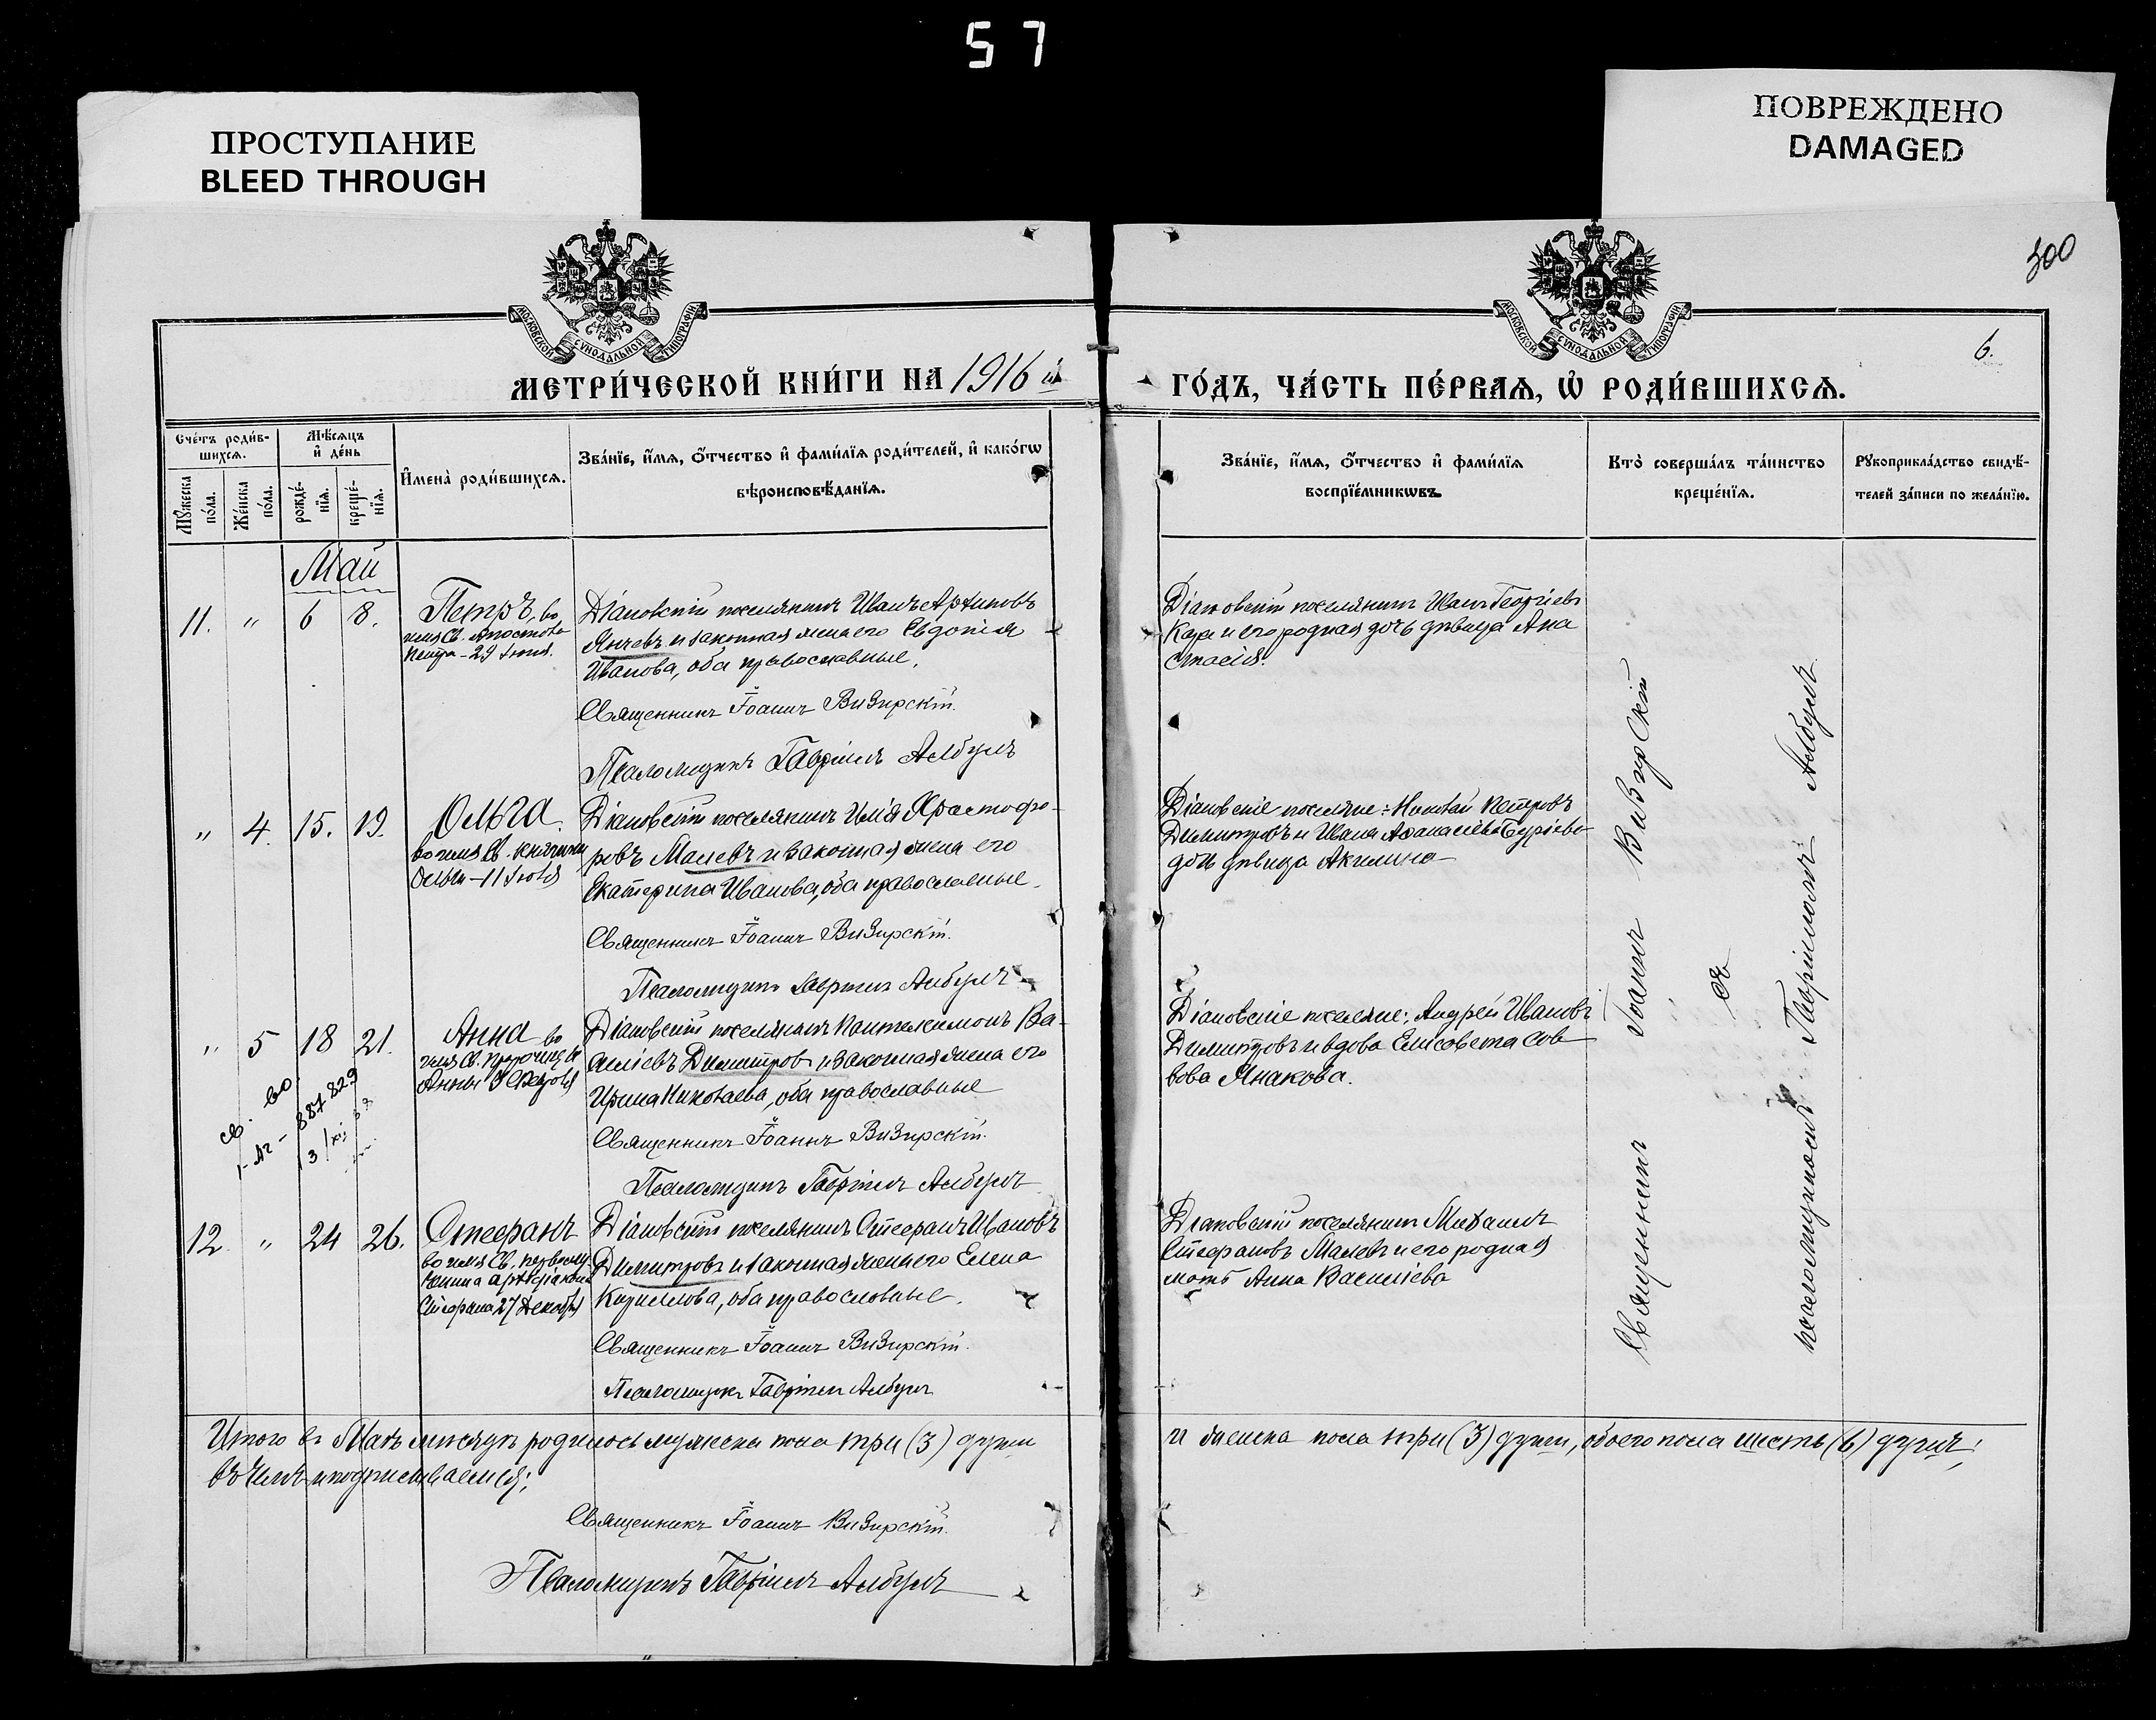 57
ПРОСТУПАНИЕ
BLEED THROUGH
ПОВРЕЖДЕНО
DAMAGED
300
6.
МОСКОВСКОЙ СѴНОДАЛЬНОЙ ТИПОГРАФІИ
МОСКОВСКОЙ СѴНОДАЛЬНОЙ ТИПОГРАФІИ
МЕТРИ́ЧЕСКОЙ КНИ́ГИ НА 1916 й
ГО́ДЪ, ЧА́СТЬ ПЕ́РВАѦ, Ѡ҆ РОДИ́ВШИХСѦ.
Сче́тъ роди́в-
шихсѧ.
Мꙋ́жеска
по́ла.
Же́нска
по́ла.
Мѣ́сѧцъ
и҆ де́нь
рожде́-
нїѧ.
креще́-
нїѧ.
И҆мена̀ роди́вшихсѧ.
Зва́нїе, и҆́мѧ, ѻ҆́тчество и҆ фами́лїѧ роди́телей, и҆ како́гѡ
вѣроисповѣ́данїѧ.
Зва́нїе, и҆́мѧ, ѻ҆́тчество и҆ фами́лїѧ
воспрїе́мникѡвъ.
Кто̀ соверша́лъ та́инство
креще́нїѧ.
Рꙋкоприкла́дство свидѣ́-
телей за́писи по жела́нїю.
Май
11. " 6 8.
Петръ, во
имя Св. Апостола
Петра – 29 Іюня.
Діановскій поселянинъ Иванъ Архиповъ
Янчевъ и законная жена его Евдокія
Иванова, оба православные.
Священникъ Іоаннъ Визирскій.
Псаломщикъ Гавріилъ Албулъ
Діановскій поселянинъ Иванъ Георгіевъ
Кара и его родная дочь дѣвица Ана
стасія.
" 4. 15. 19.
Ольга.
во имя Св. Княгини
Ольги – 11 Іюля
Діановскій поселянинъ Илія Христофо-
ровъ Малевъ и законная жена его
Екатерина Иванова, оба православные.
Священникъ Іоаннъ Визирскій.
Псаломщикъ Гавріилъ Албулъ
Діановскіе поселяне: Николай Петровъ
Димитровъ и Ивана Афанасіева
дочь дѣвица Акилина
" 5 18 21.
Анна во
имя Св. Пророчицы
Анны 3 Февраля
Діановскій поселянинъ Пантелеимонъ Ва-
силіевъ Димитровъ и законная жена его
Ирина Николаева, оба православные
Священникъ Іоаннъ Визирскій.
Псаломщикъ Гавріилъ Албулъ
Діановскіе поселяне: Андрей Ивановъ
Димитровъ и вдова Елисавета Сав
вова Янакова.
св-во
887829
12. " 24 26.
Стефанъ
во имя Св. первому-
ченика архидіакона
Стефана 27 Декабря
Діановскій поселянинъ Стефанъ Ивановъ
Димитровъ и законная жена его Елена
Кириллова, оба православные.
Священникъ Іоаннъ Визирскій.
Псаломщикъ Гавріилъ Албулъ
Діановскій поселянинъ Михаилъ
Стефановъ Малевъ и его родная
мать Анна Василіева
Священникъ Іоаннъ Визирскій
съ
псаломщикомъ Гавріиломъ Албулъ
Итого въ Маѣ мѣсяцѣ родилось мужеска пола три (3) души
и женска пола три (3) души, обоего пола шесть (6) душъ;
въ чемъ и подписываемся;
Священникъ Іоаннъ Визирскій.
Псаломщикъ Гавріилъ Албулъ